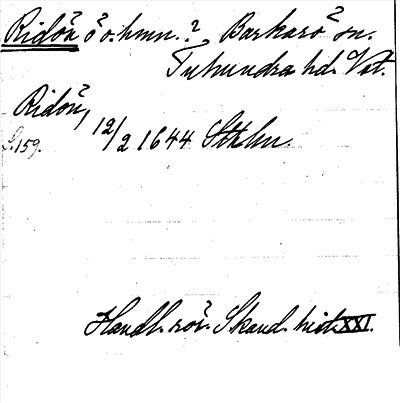 Ridön ö o. hmn.? Barkarö sn.
Tuhundra hd. Vstm.
Ridön, 12/2 1644 Sthlm.
S. 159.
Handl. rör. Skand. hist. XXI.